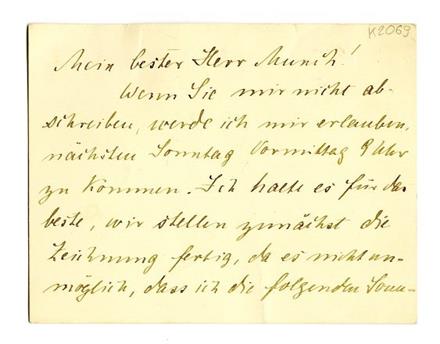 K2069
Mein bester Herr Munch!
Wenn Sie mir nicht ab-
schreiben, werde ich mir erlauben,
nächsten Sonntag Vormittag 9 Uhr
zu kommen. Ich halte es für das
beste, wir stellen zunächst die
Zeichnung fertig, da es nicht un-
möglich, dass ich die folgenden Sonn-